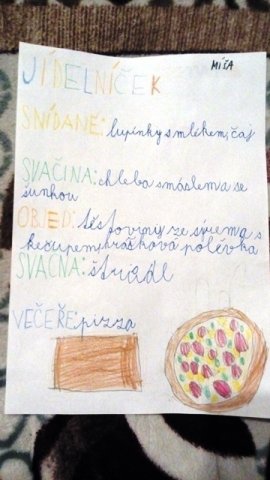 MÍŠA
JÍDELNÍČEK
SNÍDANĚ: lupínky s mlékem, čaj
SVAČINA: chleba smáslem a se
šunkou
OBJED: těstoviny ze sýrem a s
kečupem, hrášková polévka
SVAČNA: štrúdl
VEČEŘE: pizza